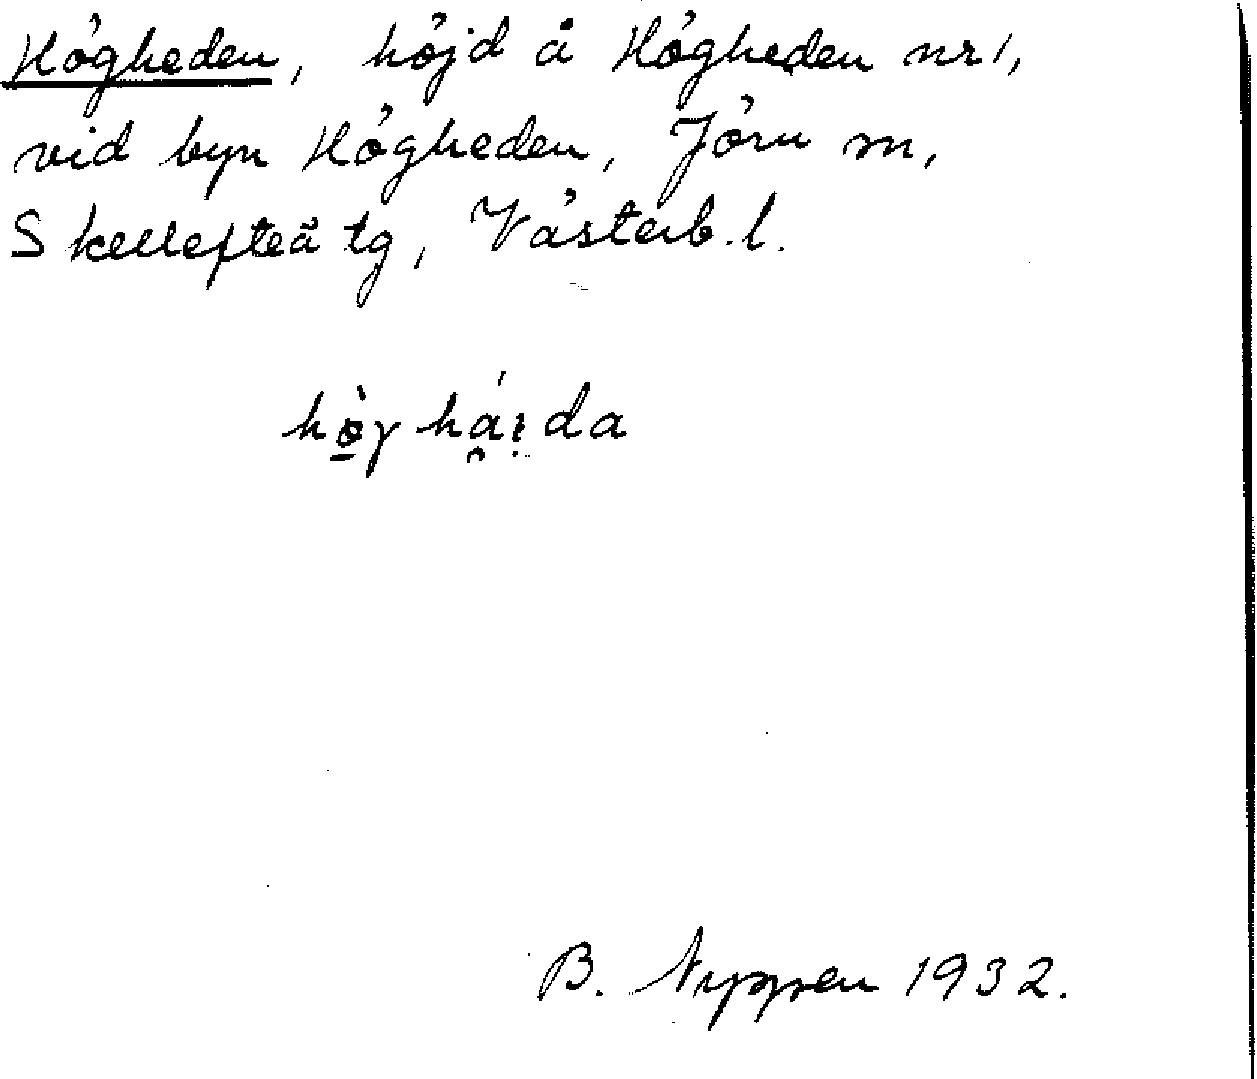 Högheden, höjd å Högheden nr 1,
vid byn Högheden, Jörn sn,
Skellefteå tg, Västerb. l.
hö̀γ há̯ı̣da
B. Nyppen 1932.